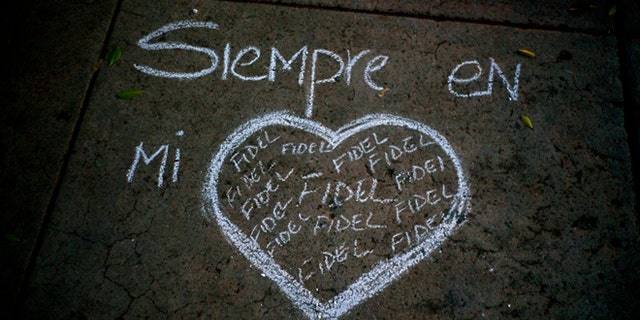 Siempre en
mi
FIDEL FIDEL FIDEL FIDEL
FIDEL FIDEL FIDEL
FIDEL FIDEL FIDEL FIDEL
FIDEL FIDEL FIDEL